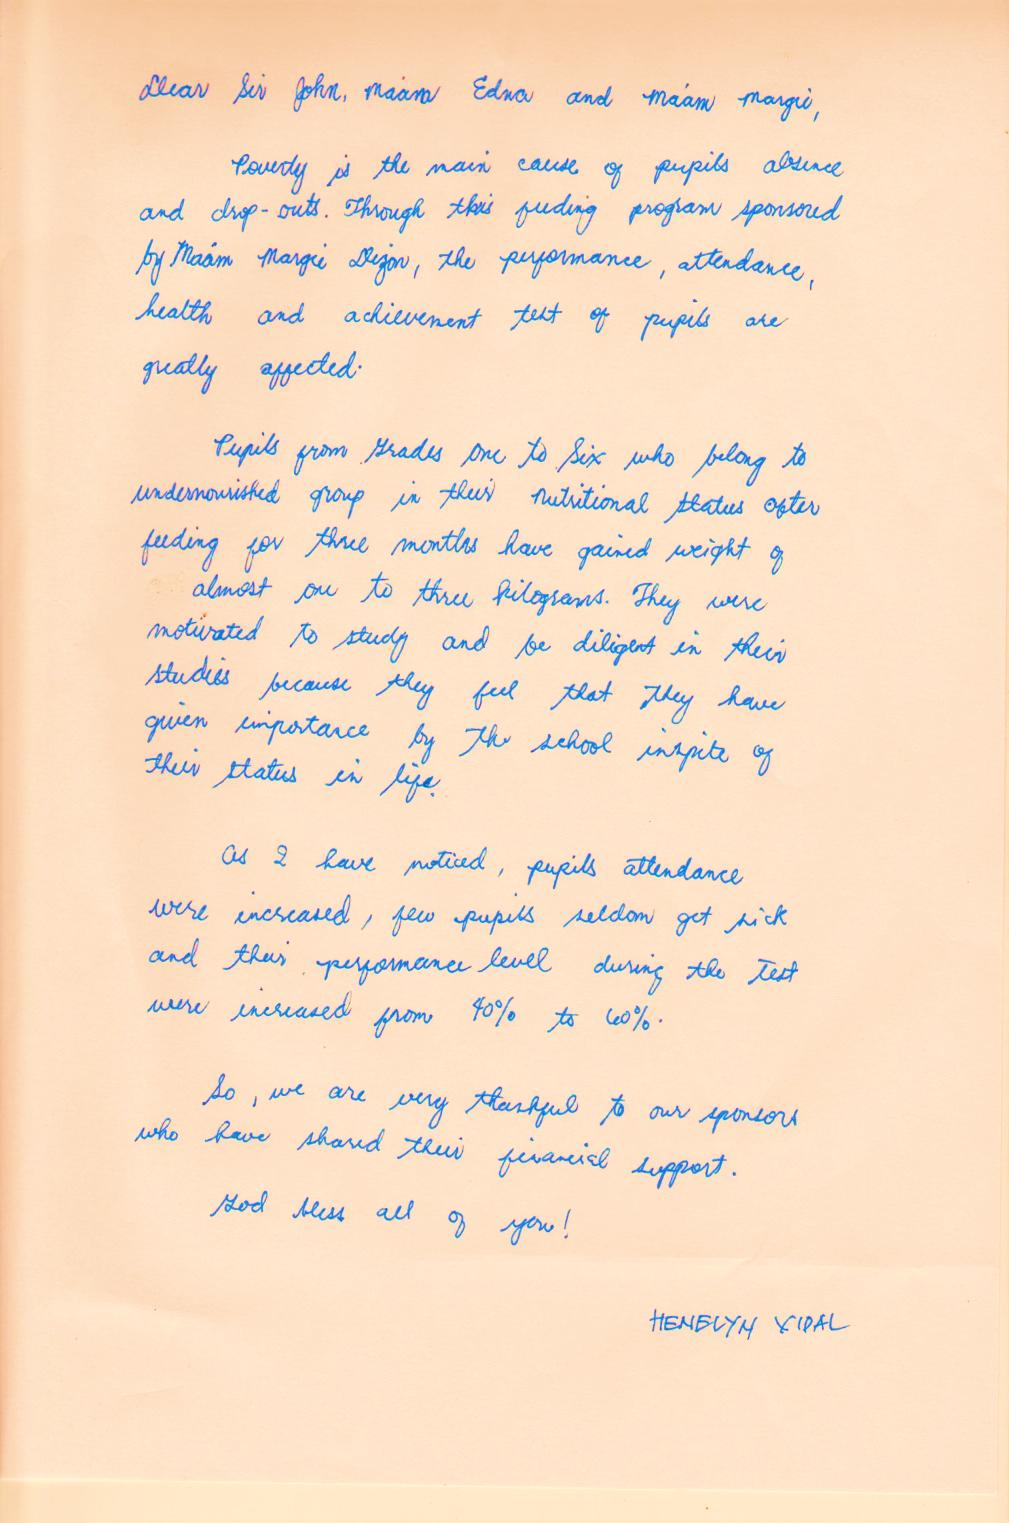 Dear Sir John, Ma'am Edna and Ma'am Margie,
Poverty is the main cause of pupils absence
and drop-outs. Through this feeding program sponsored
by Ma'am Margie Dizon, the performance, attendance,
health and achievement test of pupils are
greatly affected.
Pupils from Grades One to Six who belong to
undernourished group in their nutritional status after
feeding for three months have gained weight of
almost one to three kilograms. They were
motivated to study and be diligent in their
studies because they feel that they have
given importance by the school inspite of
their status in life.
As I have noticed, pupils attendance
were increased, few pupils seldom get sick
and their performance level during the Test
were increased from 40% to 60%.
So, we are very thankful to our sponsors
who have shared their financial support.
God bless all of you!
HENELYN VIDAL